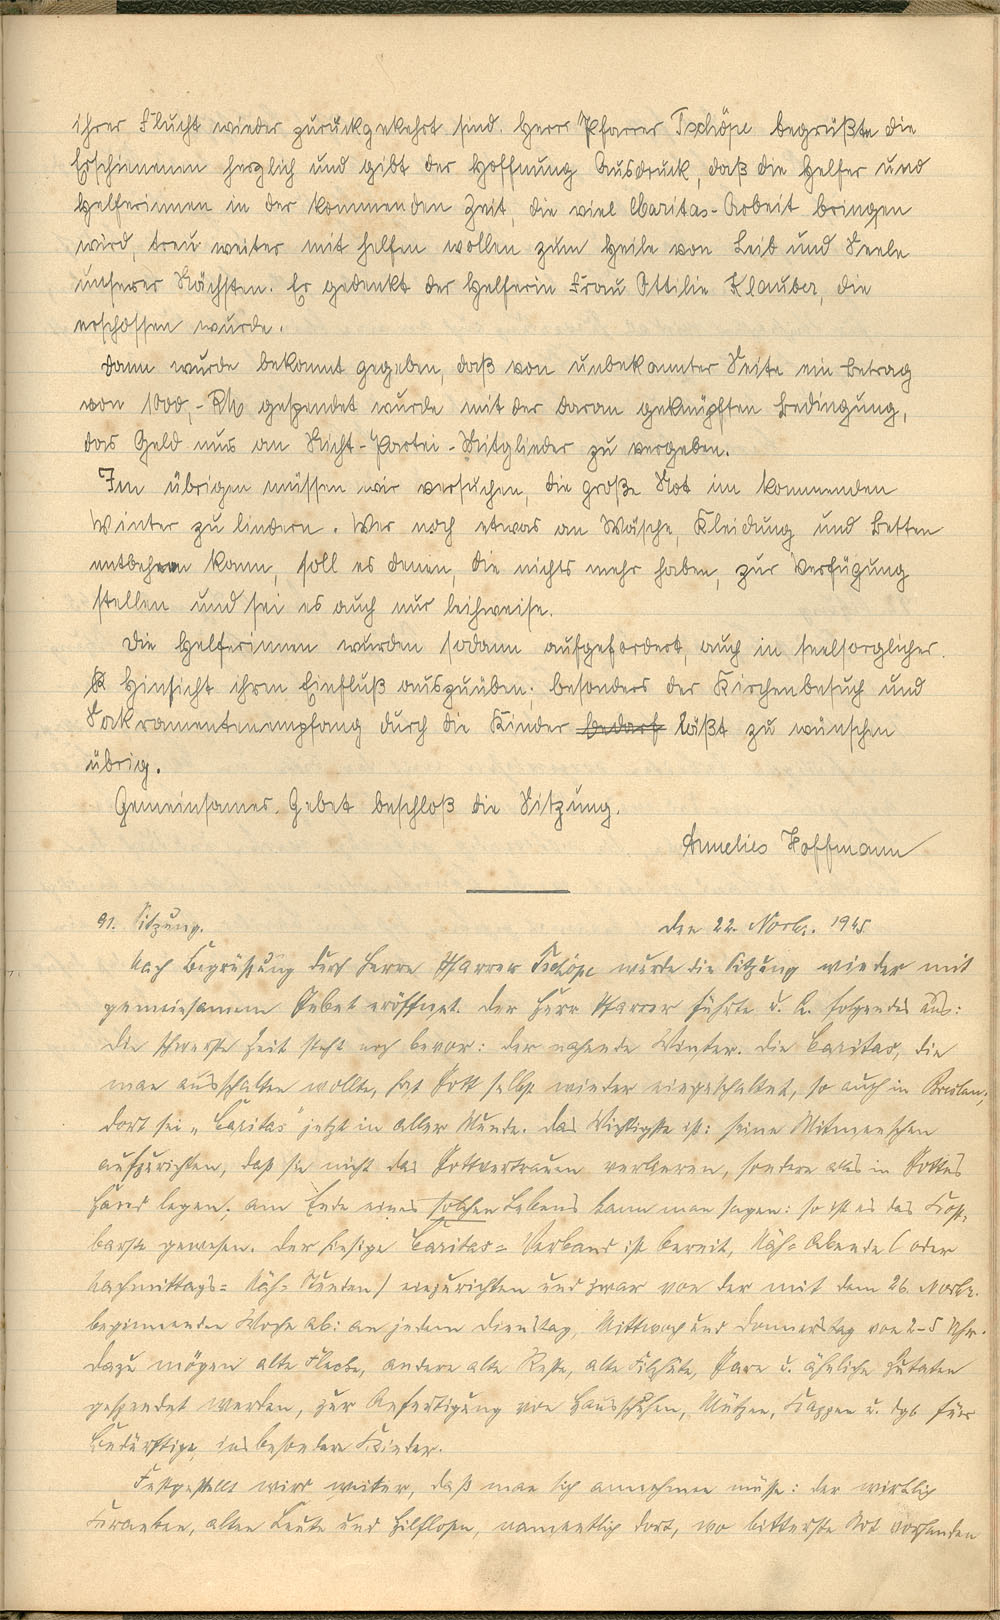 ihrer Flucht wieder zurückgekehrt sind. Herr Pfarrer Tschöpe begrüßte die
Erschienenen herzlich und gibt der Hoffnung Ausdruck, daß die Helfer und
Helferinnen in der kommenden Zeit, die viel Caritas-Arbeit bringen
wird, treu weiter mit helfen wollen zum Heile von Leib und Seele
unserer Nächsten. Er gedenkt der Helferin Frau Ottilie Klauber, die
erschossen wurde.
Dann wurde bekannt gegeben, daß von unbekannter Seite ein Betrag
von 1000,- RM gespendet wurde mit der daran geknüpften Bedingung,
das Geld nur an Nicht-Partei-Mitglieder zu vergeben.
Im übrigen müssen wir versuchen, die große Not im kommenden
Winter zu lindern. Wer noch etwas an Wäsche, Kleidung und Betten
entbehren kann, soll es denen, die nichts mehr haben, zur Verfügung
stellen und sei es auch nur leihweise.
Die Helferinnen wurden sodann aufgefordert, auch in seelsorglicher
Hinsicht ihren Einfluß auszuüben; besonders der Kirchenbesuch und
Sakramentenempfang durch die Kinder bedarf läßt zu wünschen
übrig.
Gemeinsames Gebet beschloß die Sitzung.
Annelies Hoffmann
91. Sitzung. den 22. Novb. 1945
Nach Begrüßung durch Herrn Pfarrer Tschöpe wurde die Sitzung wieder mit
gemeinsamem Gebet eröffnet. Der Herr Pfarrer führte u. A. folgendes aus:
Die schwerste Zeit steht noch bevor: der nahende Winter. Die Caritas, die
man ausschalten wollte, hat Gott selbst wieder eingeschaltet, so auch in Breslau;
dort sei „Caritas" jetzt in aller Munde. Das Wichtigste ist: seine Mitmenschen
aufzurichten, daß sie nicht das Gottvertrauen verlieren, sondern alles in Gottes
Hand legen; am Ende eines solchen Lebens kann man sagen: so ist es das Kost-
barste gewesen. Der hiesige Caritas-Verband ist bereit, Näh-Abende (oder
Nachmittags-Näh-Stunden) einzurichten und zwar von der mit dem 26. Novbr.
beginnenden Woche ab: an jedem Dienstag, Mittwoch und Donnerstag von 2-5 Uhr.
Dazu mögen alte Flecke, andere alte Reste, alte Filzhüte, Garn u. ähnliche Zutaten
gespendet werden, zur Anfertigung von Hausschuhen, Mützen, Kappen u. dgl. für
Bedürftige, insbesondere Kinder.
Festgestellt wird weiter, daß man sich annehmen müsse: der wirklich
Kranken, alten Leute und Hilflosen, namentlich dort, wo bitterste Not vorhanden